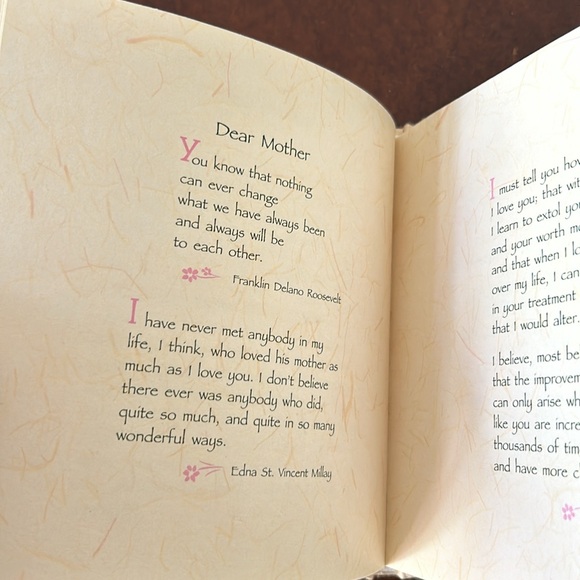 Dear Mother
You know that nothing
can ever change
what we have always been
and always will be
to each other.
Franklin Delano Roosevelt
I have never met anybody in my
life, I think, who loved his mother as
much as I love you. I don't believe
there ever was anybody who did,
quite so much, and quite in so many
wonderful ways.
Edna St. Vincent Millay
I must tell you
I love you; that
I learn to extol
and your worth
and that when I
over my life, I can
in your treatment
that I would alter.
I believe, most
that the
can only arise
like you are
thousands of
and have more